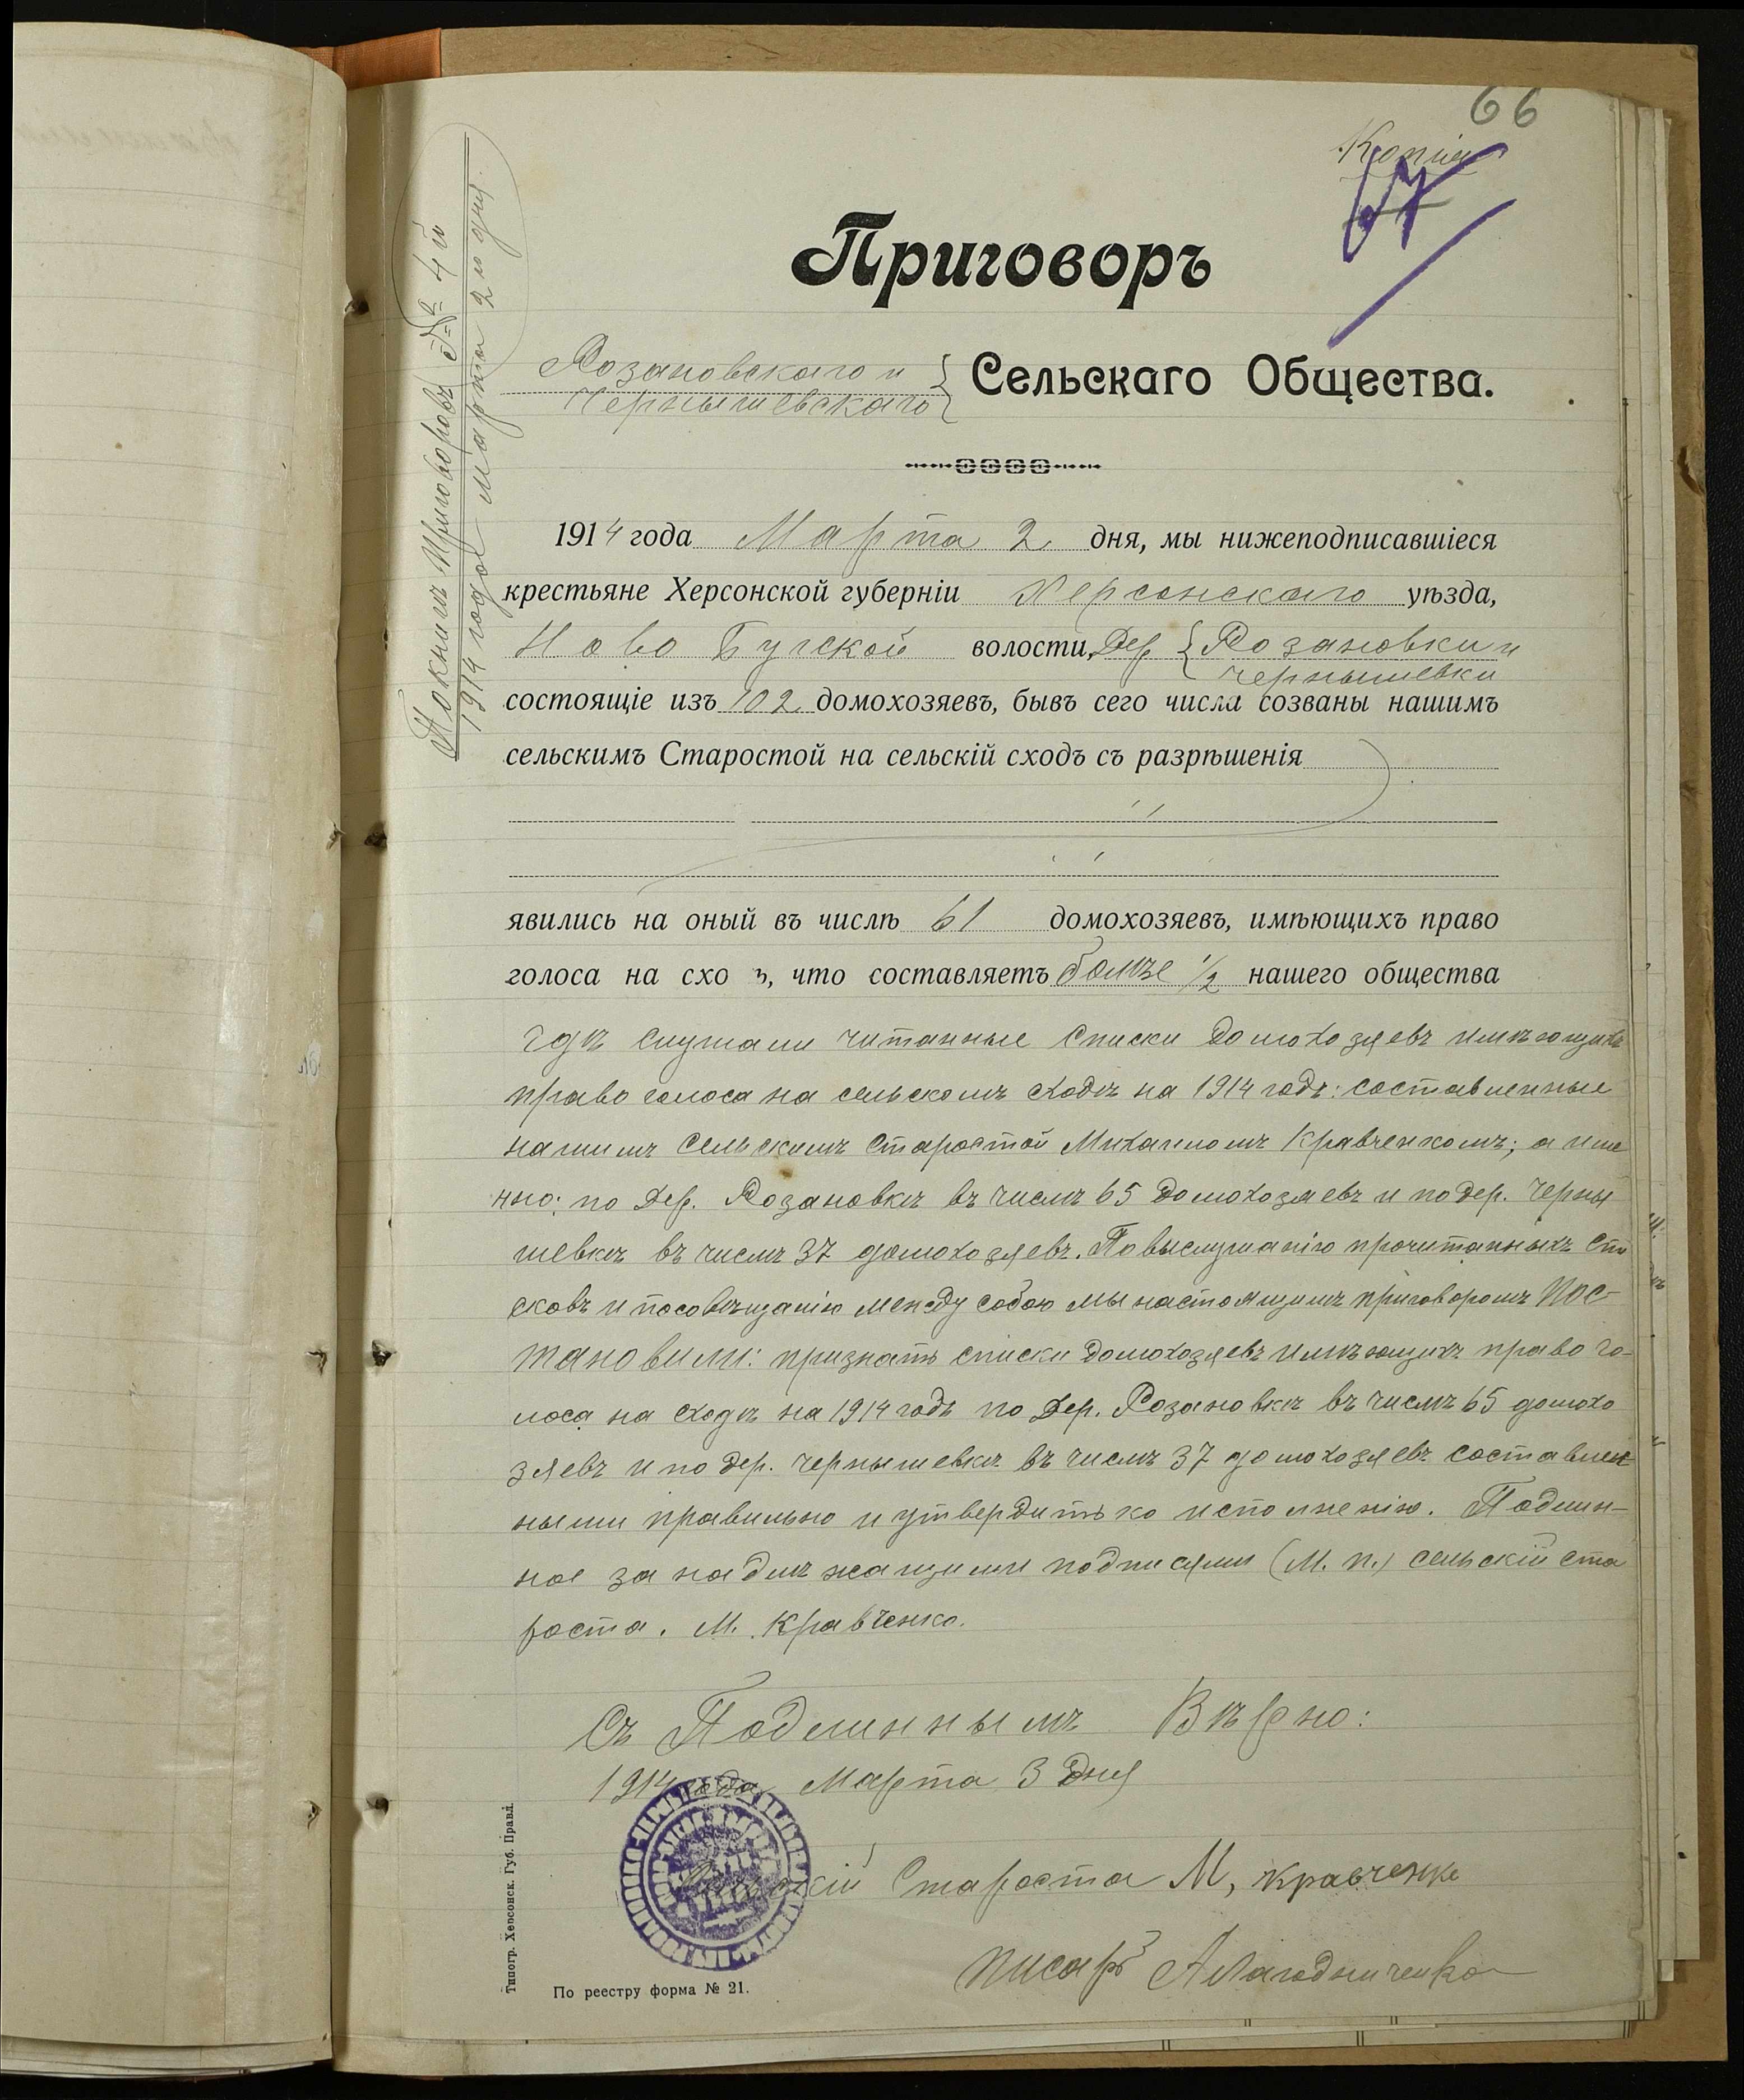 66
Копія
67
Приговоръ
Розановскаго и
Чернышевскаго
Сельскаго Общества.
По книгѣ Приговоровъ № 4 й
1914 года Марта 2 го дня.
1914 года Марта 2 дня, мы нижеподписавшіеся
крестьяне Херсонской губерніи Херсонскаго уѣзда,
Ново Бугской волости, Дер. Розановки и
Чернышевки
состоящіе изъ 102 домохозяевъ, бывъ сего числа созваны нашимъ
сельскимъ Старостой на сельскій сходъ съ разрѣшенія
явились на оный въ числѣ 61 домохозяевъ, имѣющихъ право
голоса на схо ъ, что составляетъ болѣе 1/2 нашего общества
гдѣ слушали читанные списки домохозяевъ имѣющихъ
право голоса на сельскомъ сходѣ на 1914 годъ: составленные
нашимъ Сельскимъ Старостой Михаиломъ Кравченкомъ; а име
нно: по Дер. Розановкѣ въ числѣ 65 домохозяевъ и по дер. Черны
шевкѣ въ числѣ 37 домохозяевъ. По выслушанію прочитанныхъ спи
сковъ и посовѣщанію между собою мы настоящимъ приговоромъ Пос-
тановили: признать списки домохозяевъ имѣющихъ право го-
лоса на сходѣ на 1914 годъ по Дер. Розановкѣ въ числѣ 65 домохо
зяевъ и по дер. Чернышевкѣ въ числѣ 37 домохозяевъ составлен
ными правильно и утвердить ко исполненію. Подлин-
ное за надлѣжащими подписями (М. п.) сельскій ста
роста. М. Кравченко.
Съ Подлиннымъ Вѣрно:
1914 года Марта 3 дня
Сельскій Староста М, Кравченко
писарь А Лагодниченко
Типогр. Херсонск. Губ. Правл.
По реестру форма № 21.